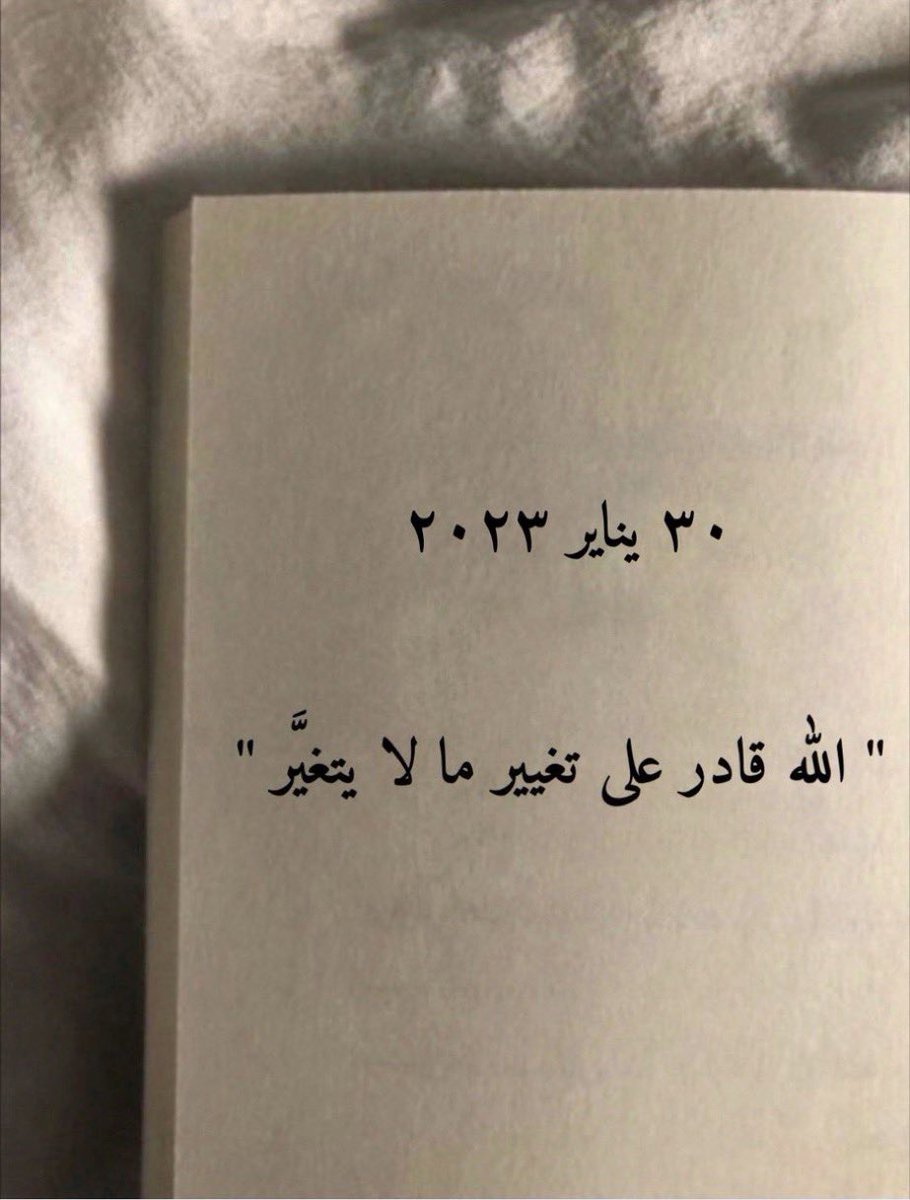 ٣٠ يناير ٢٠٢٣
" الله قادر على تغيير ما لا يتغيَّر "